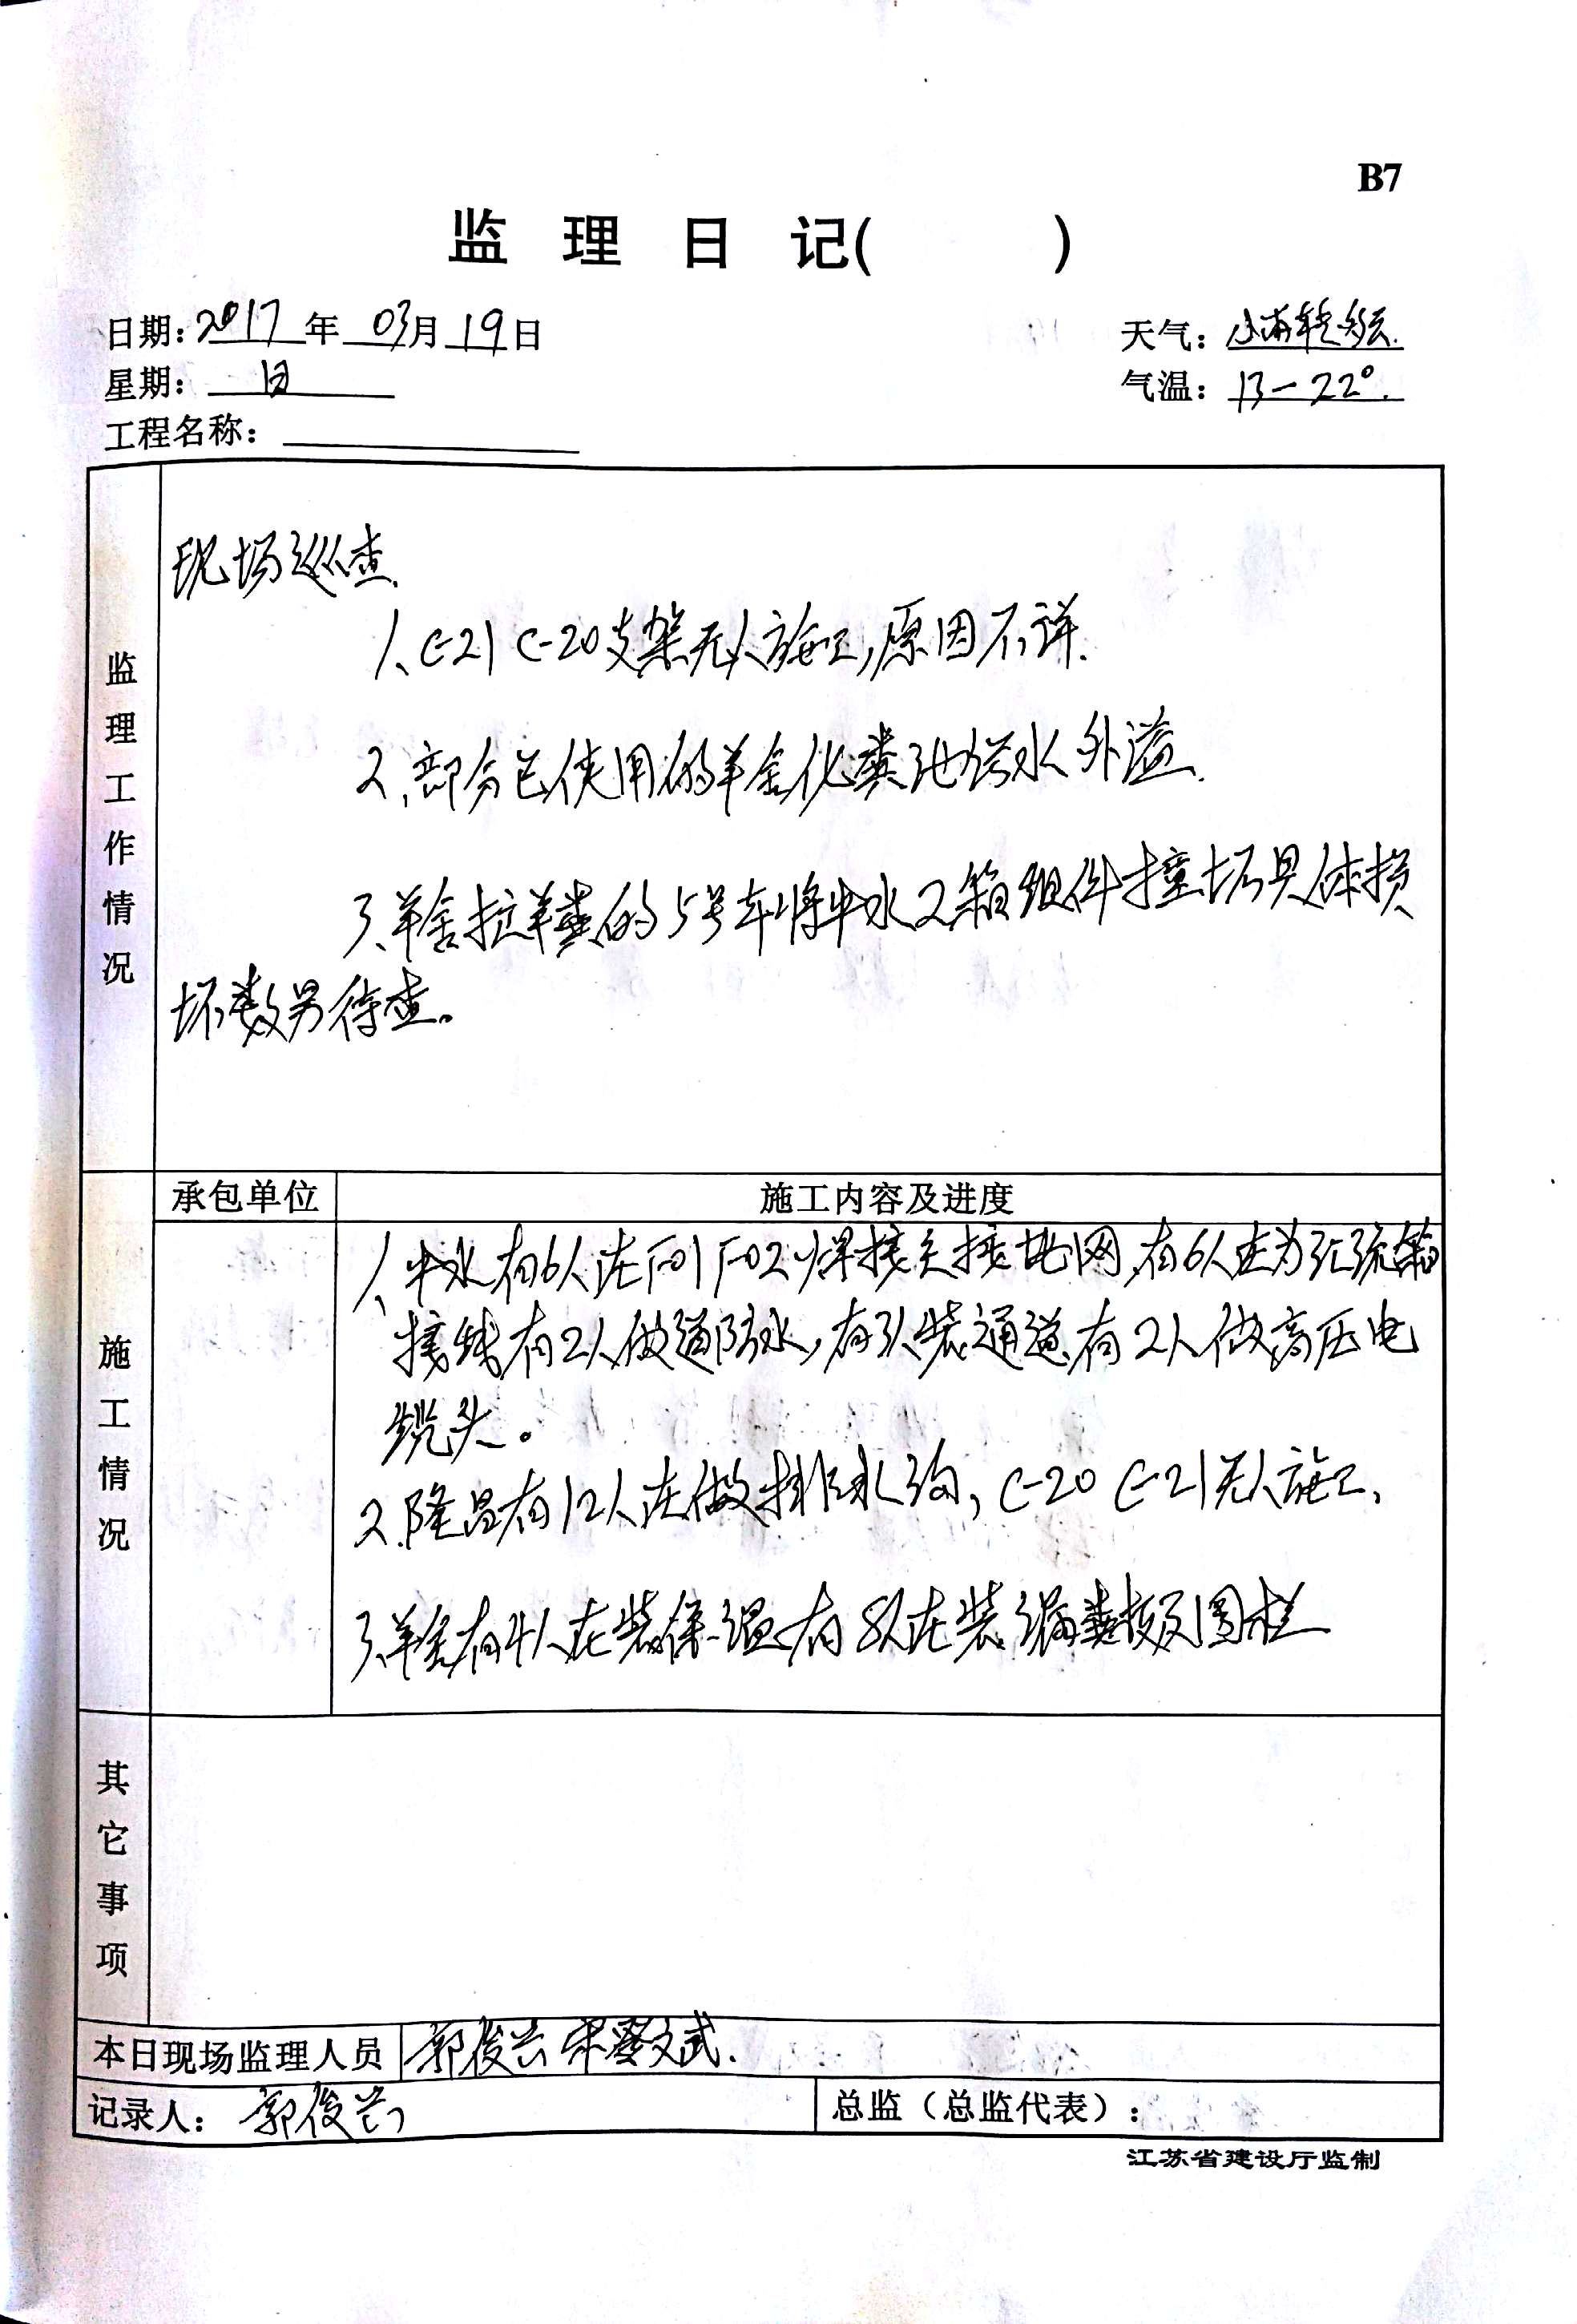 B7
监理日记( )
日期：2017年03月19日
天气：小雨转多云.
星期：日
气温：13-22°.
工程名称：
监理工作情况
现场巡查.
1、C-21 C-20支架无人施工,原因不详.
2、部分已使用的羊舍化粪池污水外溢.
3、羊舍拉羊粪的5号车将中水2箱组件撞坏具体损
坏数另待查。
承包单位
施工内容及进度
施工情况
1、中水有6人在F01 F02焊接关接地网,有6人在为汇流箱
接线有2人做道防水,有3人装通道有2人做高压电
缆头。
2.隆昌有12人在做排水沟, C-20 C-21无人施工,
3、羊舍有4人在装保温有8人在装漏粪板及围栏
其它事项
本日现场监理人员 郭俊兰 文武.
记录人：郭俊兰
总监（总监代表）：
江苏省建设厅监制